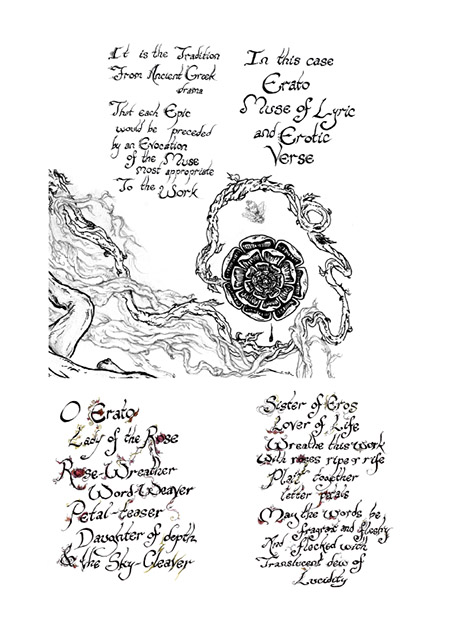 It is the Tradition
From Ancient Greek
drama
That each Epic
would be preceded
by an Evocation
of the Muse
most appropriate
To the Work
In this case
Erato
Muse of Lyric
and Erotic
Verse
O Erato
Lady of the Rose
Rose-Wreather
Word-Weaver
Petal-teaser
Daughter of depth
& the Sky-Cleaver
Sister of Eros
Lover of Life
Wreathe this work
With roses ripe & rife
Plait together
letter petals
May the Words be
fragrant and fleshy
And flocked with
Translucent dew of
Lucidity